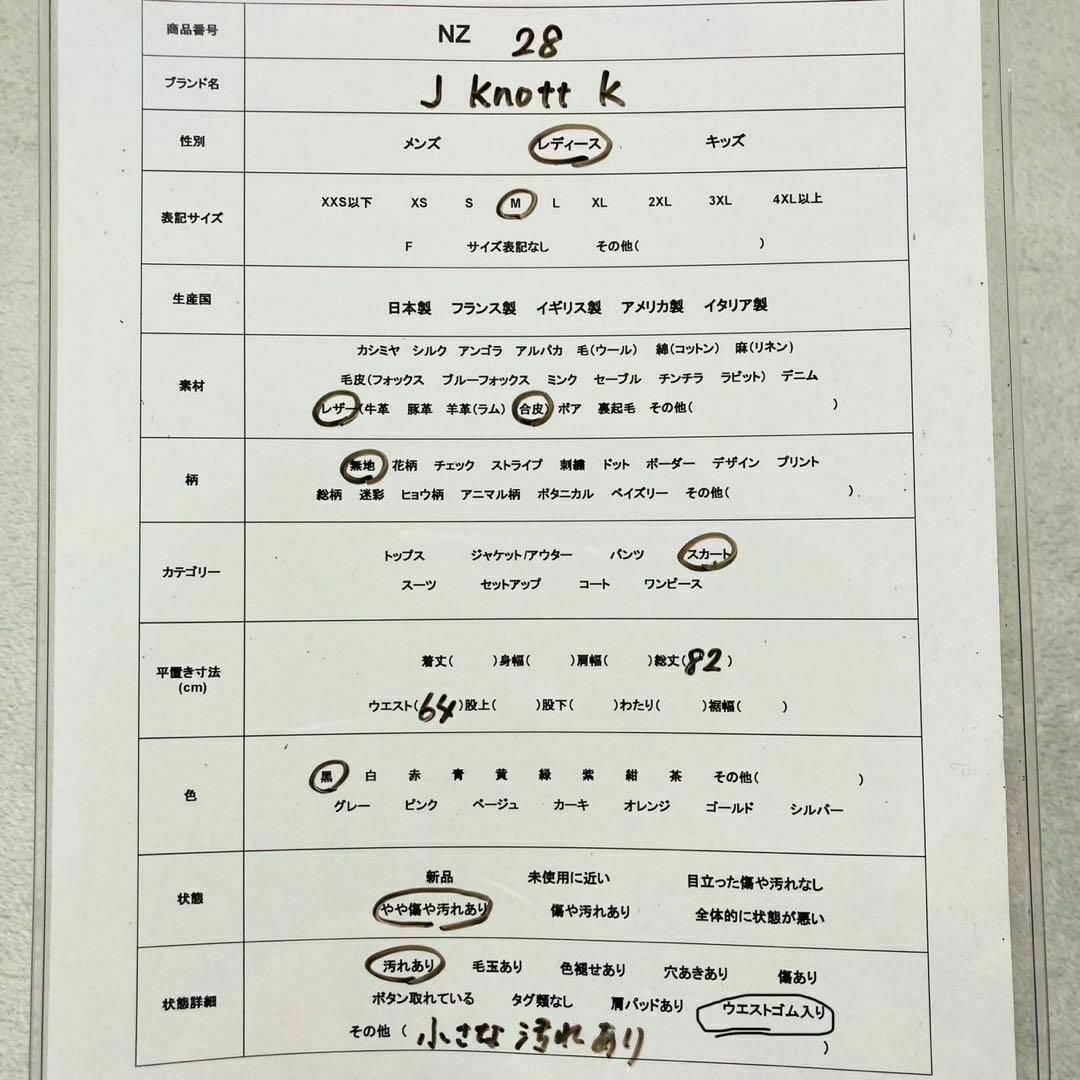 商品番号 NZ 28
ブランド名 J Knott K
性別 メンズ レディース キッズ
XXS以下 XS S M L XL 2XL 3XL 4XL以上
表記サイズ
F サイズ表記なし その他( )
生産国 日本製 フランス製 イギリス製 アメリカ製 イタリア製
カシミヤ シルク アンゴラ アルパカ 毛(ウール) 綿(コットン) 麻(リネン)
素材 毛皮(フォックス ブルーフォックス ミンク セーブル チンチラ ラビット) デニム
レザー(牛革 豚革 羊革(ラム) 合皮) ボア 裏起毛 その他( )
無地 花柄 チェック ストライプ 刺繍 ドット ボーダー デザイン プリント
柄
総柄 迷彩 ヒョウ柄 アニマル柄 ボタニカル ペイズリー その他( )
トップス ジャケット/アウター パンツ スカート
カテゴリー
スーツ セットアップ コート ワンピース
着丈( )身幅( )肩幅( )総丈(82)
平置き寸法
(cm)
ウエスト(64)股上( )股下( )わたり( )裾幅( )
黒 白 赤 青 黄 緑 紫 紺 茶 その他( )
色
グレー ピンク ベージュ カーキ オレンジ ゴールド シルバー
新品 未使用に近い 目立った傷や汚れなし
状態
やや傷や汚れあり 傷や汚れあり 全体的に状態が悪い
汚れあり 毛玉あり 色褪せあり 穴あきあり 傷あり
状態詳細 ボタン取れている タグ類なし 肩パッドあり ウエストゴム入り
その他 ( 小さな汚れあり )